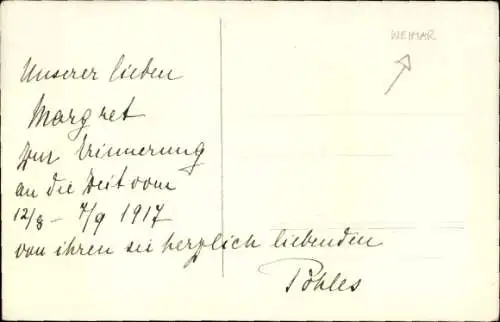 WEIMAR
Unserer lieben
Margret
Zur Erinnerung
an die Zeit vom
12/8 - 7/9 1917
von ihren sie herzlich liebenden
Pöhles